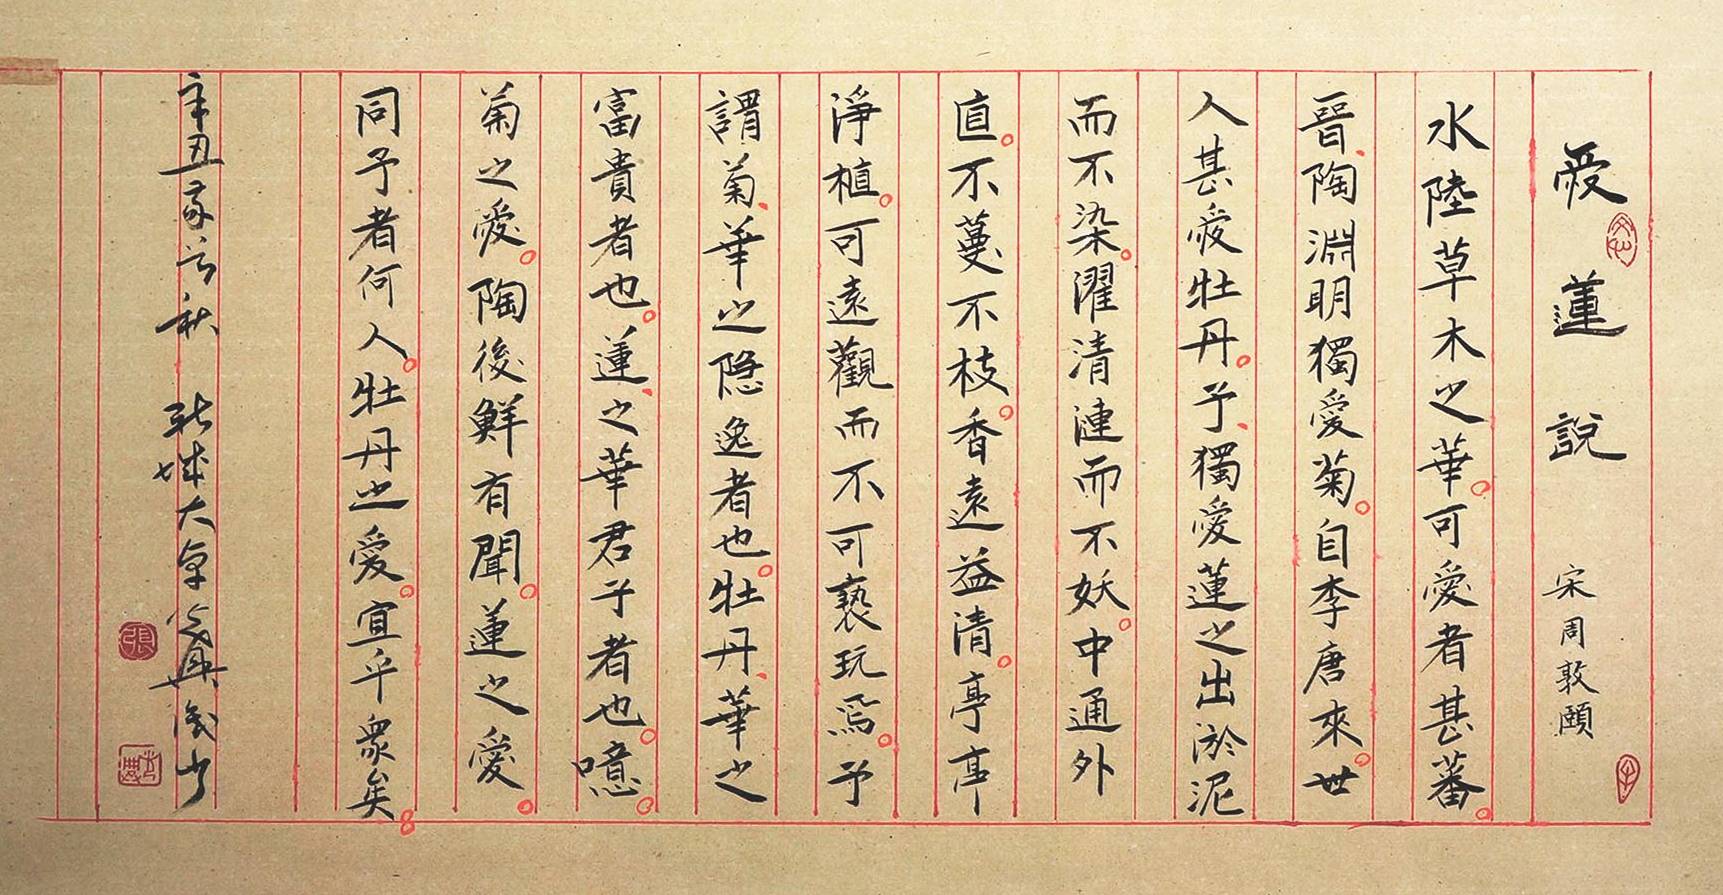 愛蓮說 宋周敦頤
水陸草木之華。可愛者甚蕃。
晉、陶淵明獨愛菊。自李唐來。世
人甚愛牡丹。予、獨愛蓮之出淤泥
而不染。濯清漣而不妖。中通外
直。不蔓不枝。香遠益清。亭亭
淨植。可遠觀而不可褻玩焉。予
謂菊、華之隱逸者也。牡丹、華之
富貴者也。蓮、之華君子者也。噫。
菊之愛。陶後鮮有聞。蓮之愛。
同予者何人。牡丹之愛。宜乎眾矣。
辛丑 秋 城大草
張